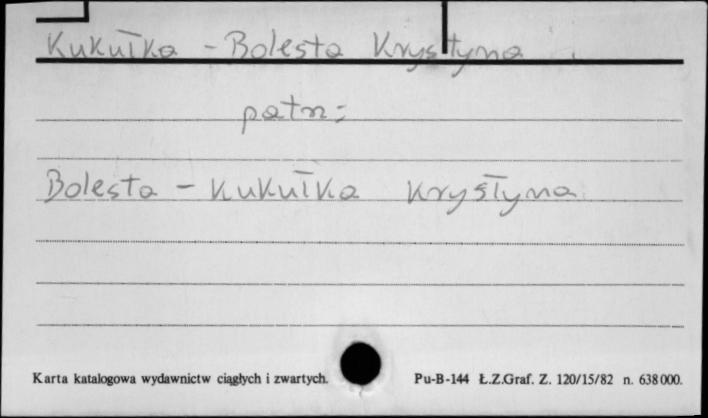 Kukułka - Bolesta Krystyna
patrz:
Bolesta - Kukułka Krystyna
Karta katalogowa wydawnictw ciągłych i zwartych.
Pu-B-144 Ł.Z.Graf. Z. 120/15/82 n. 638000.